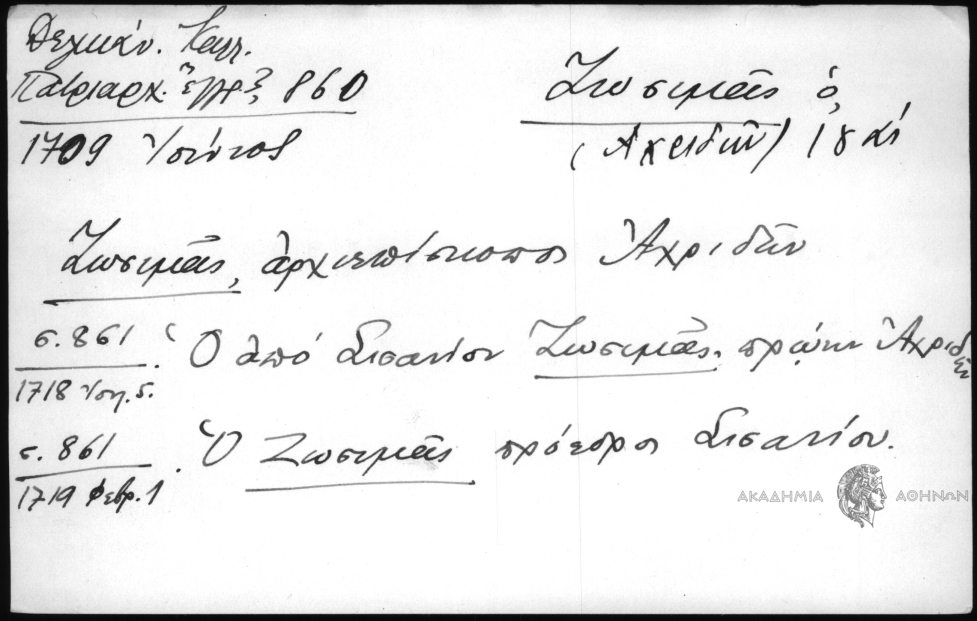 Δελικάν. Καλλ.
Πατριαρχ. Ἔγγρ. 3, 860
1709 Ἰούνιος
Ζωσιμᾶς ὁ,
(Ἀχριδῶν) 18 αἰ
Ζωσιμᾶς, ἀρχιεπίσκοπος Ἀχριδῶν
σ. 861
1718 Ἰουλ. 5.
Ὁ ἀπό Σισανίου Ζωσιμᾶς. πρῴην Ἀχριδῶν
σ. 861
1719 Φεβρ. 1
Ὁ Ζωσιμᾶς πρόεδρος Σισανίου.
ΑΚΑΔΗΜΙΑ ΑΘΗΝΩΝ